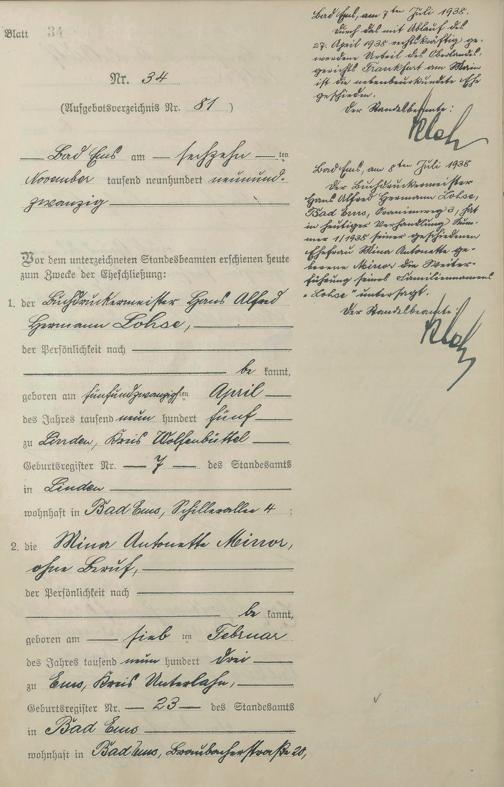 Blatt 34
Nr. 34
(Aufgebotsverzeichnis Nr. 81)
Bad Ems am sechzehnten
November tausend neunhundert neunund-
zwanzig
Vor dem unterzeichneten Standesbeamten erschienen heute
zum Zwecke der Eheschließung:
1. der Buchdruckermeister Hans Alfred
Hermann Lohse,
der Persönlichkeit nach
be kannt,
geboren am fünfundzwanzigsten April
des Jahres tausend neun hundert fünf
zu Linden, Kreis Wolfenbüttel
Geburtsregister Nr. 7 des Standesamts
in Linden
wohnhaft in Bad Ems, Schillerallee 4;
2. die Mina Antonette Mirror,
ohne Beruf,
der Persönlichkeit nach
be kannt,
geboren am siebten Februar
des Jahres tausend neun hundert drei
zu Ems, Kreis Unterlahn,
Geburtsregister Nr. 23 des Standesamts
in Bad Ems
wohnhaft in Bad Ems, Braubacherstraße 20,
Bad Ems, am 7ten Juli 1938.
Durch das mit Ablauf des
27. April 1938 rechtskräftig ge-
wordene Urteil des Oberlandes-
gerichts Frankfurt am Main
ist die nebenbeurkundete Ehe
geschieden.
Der Standesbeamte:
Bad Ems, am 8ten Juli 1938
Der Buchdruckermeister
Hans Alfred Hermann Lohse,
Bad Ems, 3, hat
in heutiger Verhandlung Num-
mer 1/1938 seiner geschiedenen
Ehefrau Mina Antonette ge-
borene Mirror die Weiter-
führung seines Familiennamens
"Lohse" untersagt.
Der Standesbeamte: